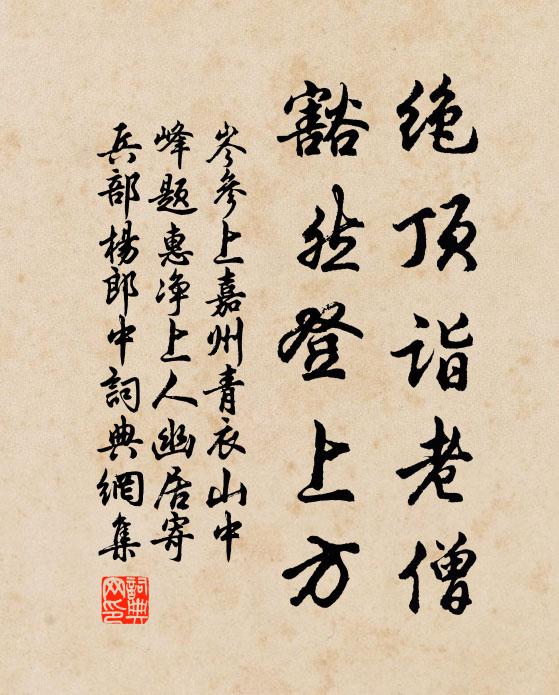 绝顶诣老僧
豁然登上方
岑參上嘉州青衣山中
峰题惠净上人幽居寄
兵部楊郎中詞典網集
詞典
网印